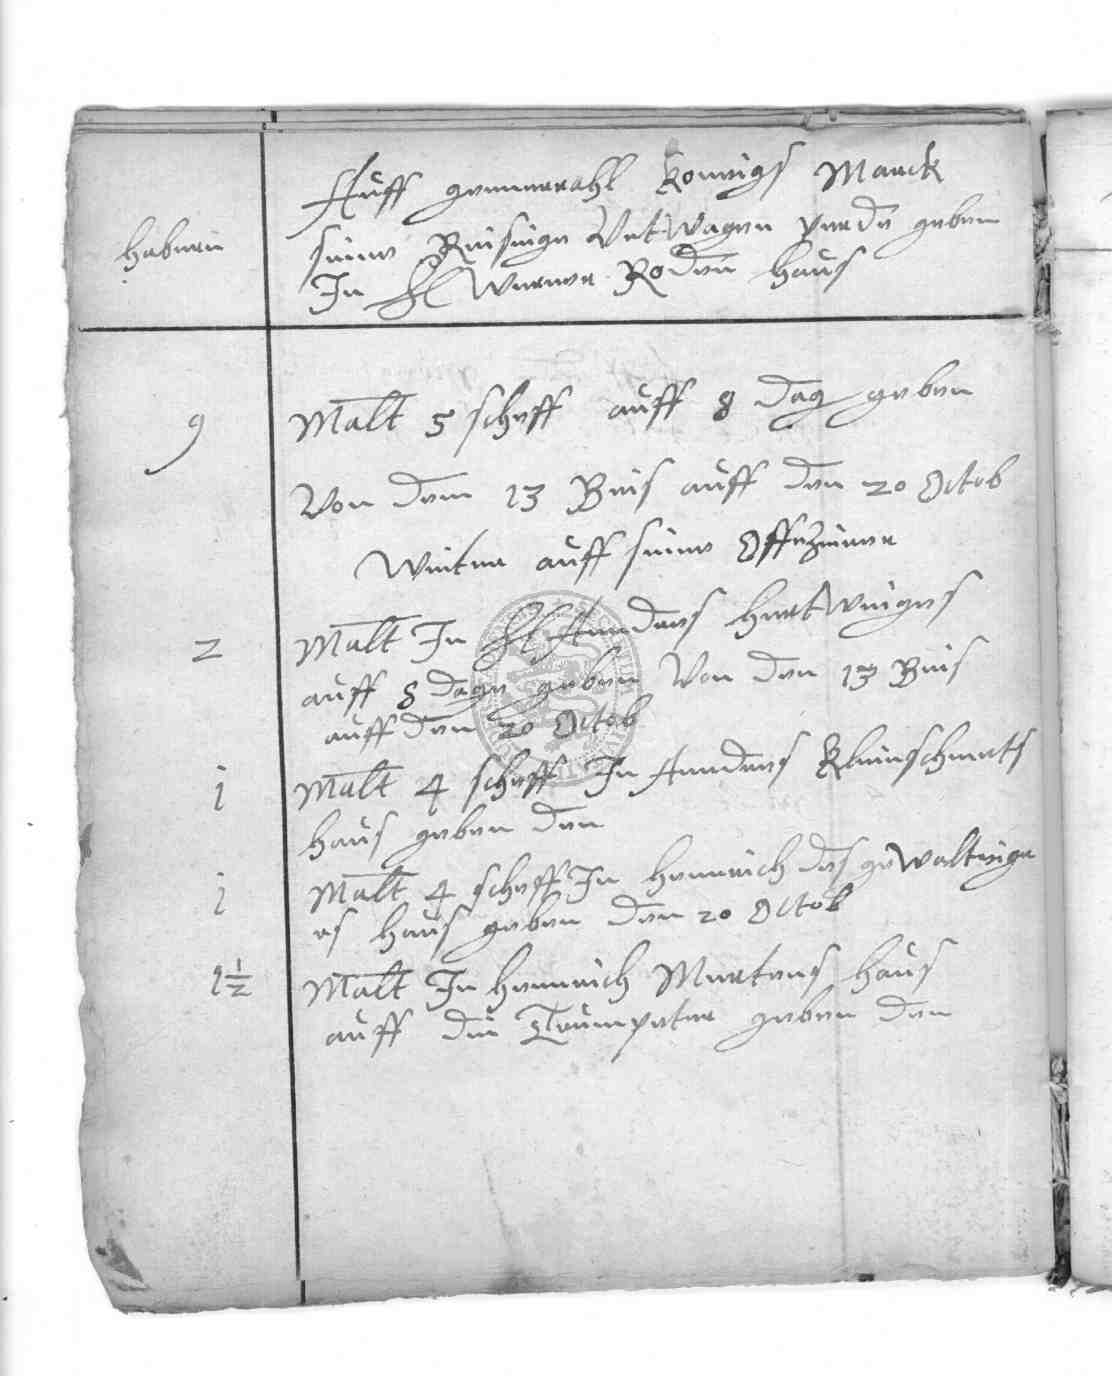 Auff gennerrahl Konnigs Marck
habern
seine Reisige Vnt Wagen perde geben
In H Werner Roden haus
9 Malt 5 scheff auff 8 dag geben
Von dem 13 Bis auff den 20 Octob
Weiter auff seine Offezierer
2 Malt In H Anderes Hertwinges
auff 8 dage geben Von den 13 Bis
auff den 20 Octob
1 Malt 4 scheff In Anderes Kleinschmets
haus geben den
1 Malt 4 scheff In Hennrich des gewaltiger
es haus geben den 20 Octob
1 1/2 Malt In Hennrich Mertens haus
auff die Trumpeter geben den